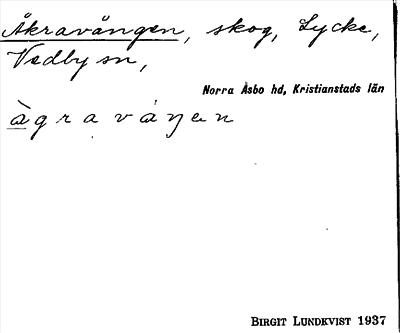 Åkravången, skog, Lycke,
Vedby sn,
Norra Åsbo hd, Kristianstads län
àgraváŋen
BIRGIT LUNDKVIST 1937